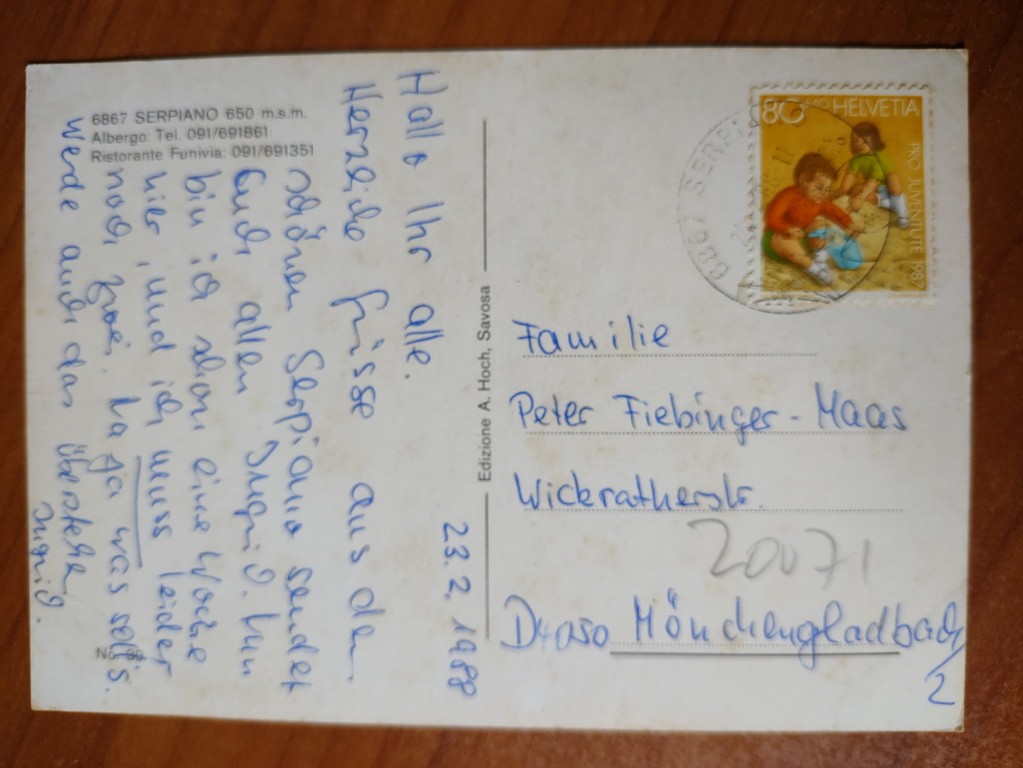 6867 SERPIANO 650 m.s.m.
Albergo: Tel. 091/691861
Ristorante Funivia: 091/691351
23.2.1988
Hallo Ihr alle.
Herzliche Grüsse aus dem
schönen Serpiano sendet
Euch allen Ingrid. Nun
bin ich schon eine Woche
hier, und ich muss leider
noch zwei. Na ja was soll's.
Werde auch das überstehen
Ingrid.
No. 89
Edizione A. Hoch, Savosa
80 HELVETIA
PRO JUVENTUTE 1987
6867 SERPIANO
Familie
Peter Fiebinger-Maas
Wickratherstr.
20071
D-4050 Mönchengladbach
/2